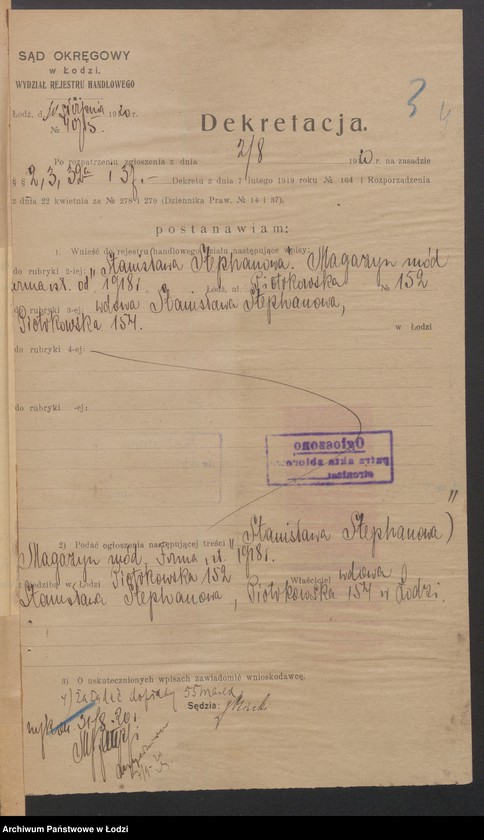 SĄD OKRĘGOWY
w Łodzi.
WYDZIAŁ REJESTRU HANDLOWEGO
Łodz, d. sierpnia 1920 r.
№
3
Dekretacja.
Po rozpatrzeniu zgłoszenia z dnia 2/8 1920 r. na zasadzie
§ § 2, 3, 32a i 37.— Dekretu z dnia 7 lutego 1919 roku № 164 i Rozporządzenia
z dnia 22 kwietnia za № 278 i 279 (Dziennika Praw. № 14 i 37).
postanawiam:
1. Wnieść do rejestru handlowego działu następujące wpisy:
do rubryki 2-iej: "Stanisława Stephanowa". Magazyn mód
Firma ist. od 1918 r. Łódź, ul. Piotrkowska № 152
do rubryki 3-ej: wdowa Stanisława Stephanowa,
Piotrkowska 157. w Łodzi
do rubryki 4-ej:
do rubryki -ej:
Ogłoszono
patrz akta zbiorowe
stronica:
2) Podać ogłoszenia następującej treści "Stanisława Stephanowa"
Magazyn mód, Firma ist. 1918 r.
siedziba w Łodzi Piotrkowska 152 Właściciel wdowa
Stanisława Stephanowa, Piotrkowska 157 w Łodzi.
3) O uskutecznionych wpisach zawiadomić wnioskodawcę.
4) Żądać dopłaty 55 marek
Sędzia:
wykon. 31/8. 20 r.
Archiwum Państwowe w Łodzi